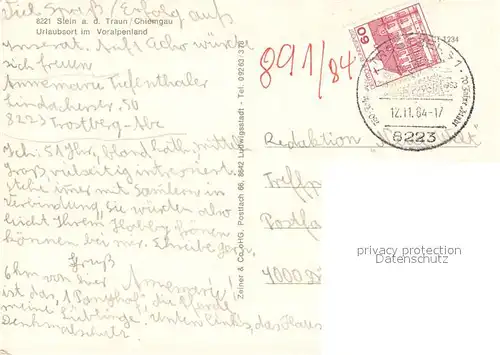 Viel Spaß / Erfolg auf
8221 Stein a. d. Traun / Chiemgau
Urlaubsort im Voralpenland
Inserat. Auf 1 Echo würde
sich freuen
Annemarie Tiefenthaler
Lindacherstr. 50
8223 Trostberg - Alz
Ich: 51 Jhr, blond, mittel
groß, vielseitig interessiert
stehe immer mit Sammlern in
Verbindung, Sie würden also
leicht Ihrem Hobby frönen
können bei mir. Schreibe gern,
Gruß
Annemarie!
6 km von hier
ist das 1 Ponyhof, die Pferde
meine Lieblinge. Unten links, das Haus
Denkmalschutz
Zeiner & Co. oHG. Postfach 66, 8642 Ludwigsstadt - Tel. 09263/378
891/84
60
1234
12.11.84-17
8223
Redaktion
Treffp
Postfa
4000 D
privacy protection
Datenschutz